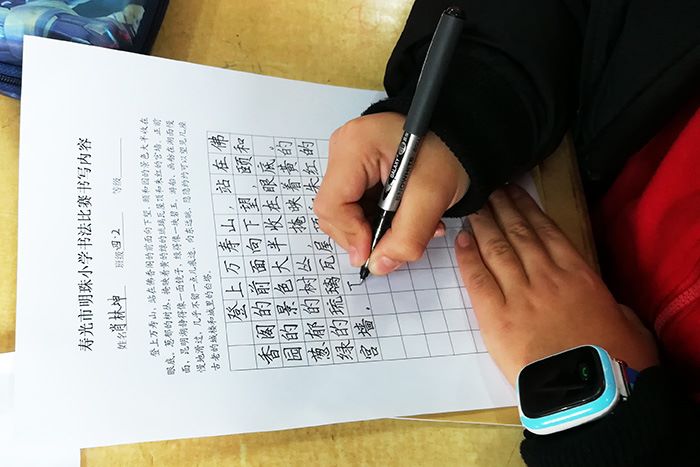 寿光市明珠小学书法比赛书写内容
姓名 肖林坤 班级 四.2 等级
登上万寿山,站在佛香阁的前面向下望,颐和园的景色大半收在
眼底。葱郁的树丛,掩映着黄的绿的琉璃瓦屋顶和朱红的宫墙。正前
面,昆明湖静得像一面镜子,绿得像一块碧玉。游船、画舫在湖面慢
慢地滑过,几乎不留一点儿痕迹。向东远眺,隐隐约约可以望见几座
古老的城楼和城里的白塔。
登上万寿山,站在佛
香阁的前面向下望,颐和
园的景色大半收在眼底。
葱郁的树丛,掩映着黄的
绿的琉璃瓦屋朱红
宫墙,